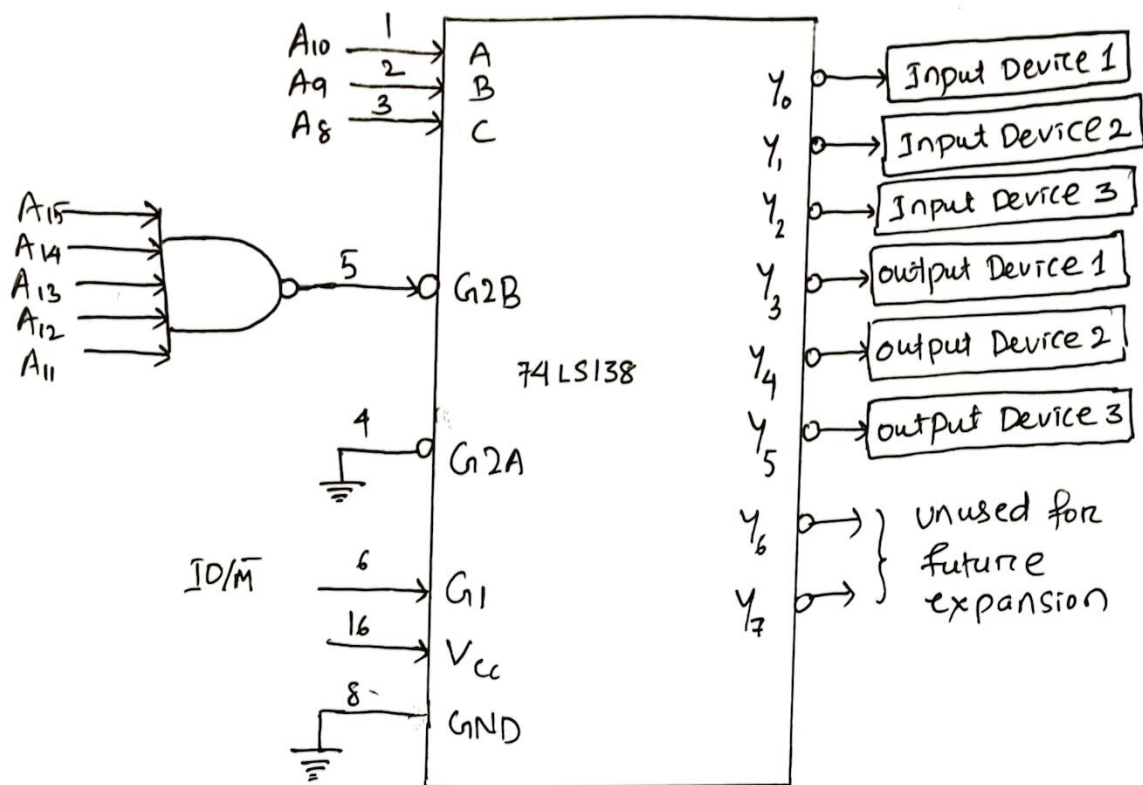 A10 1 A
A9 2 B
A8 3 C
A15
A14
A13
A12
A11
5 G2B
4 G2A
IO/M̅ 6 G1
16 Vcc
8 GND
74LS138
Y0 Input Device 1
Y1 Input Device 2
Y2 Input Device 3
Y3 output Device 1
Y4 output Device 2
Y5 output Device 3
Y6
Y7
unused for
future
expansion